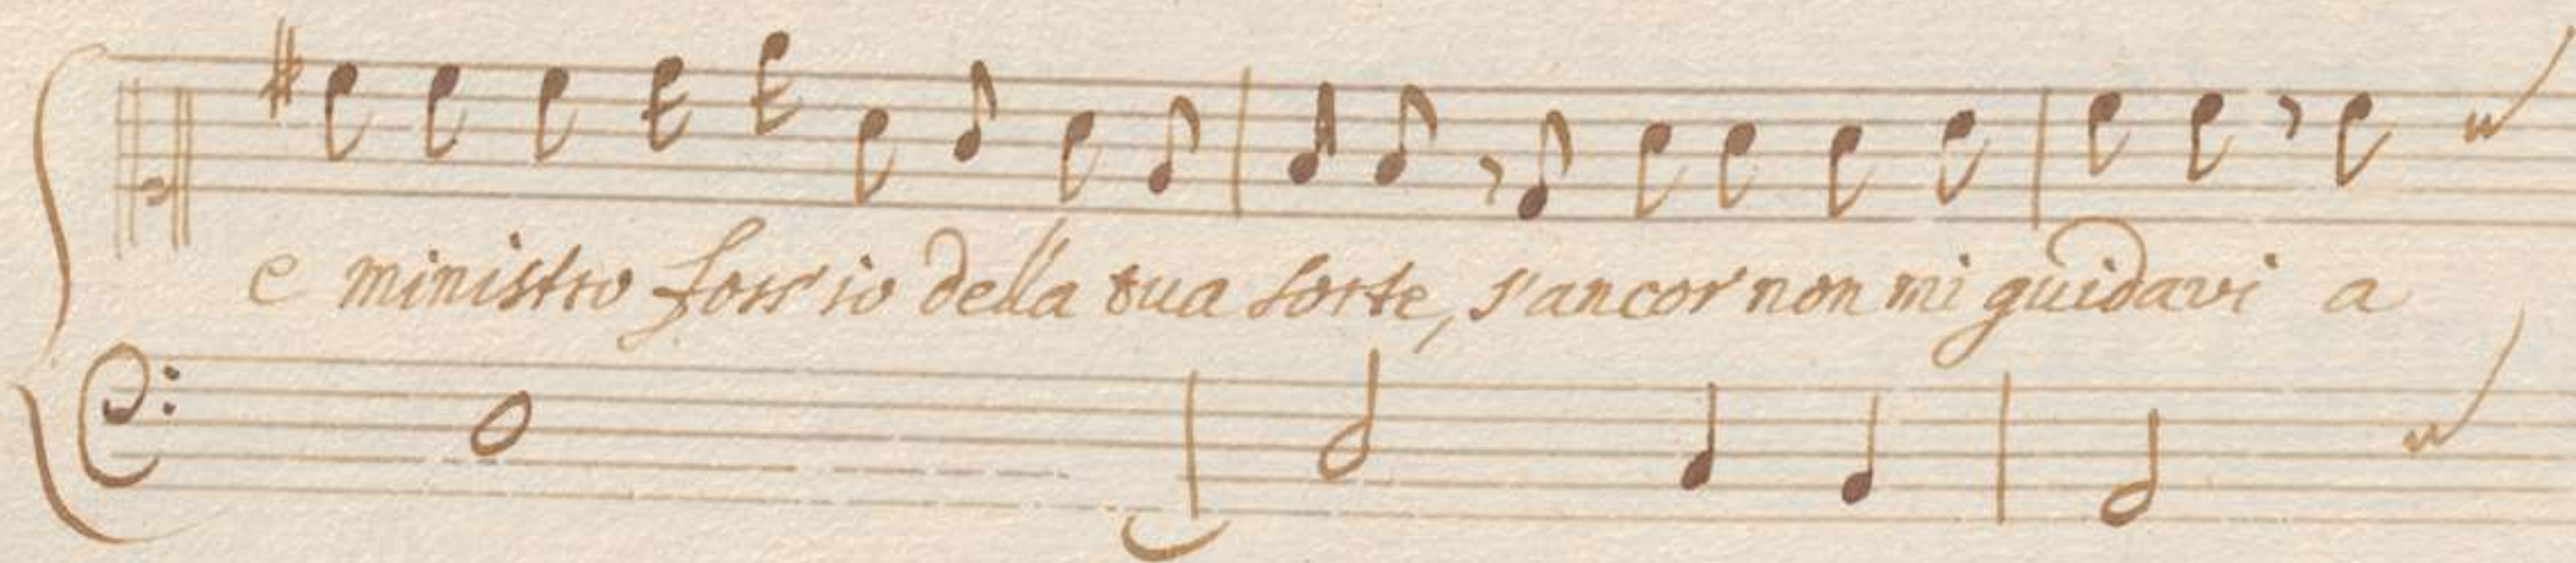 e ministro foss'io della tua sorte, s'ancor non mi guidavi a